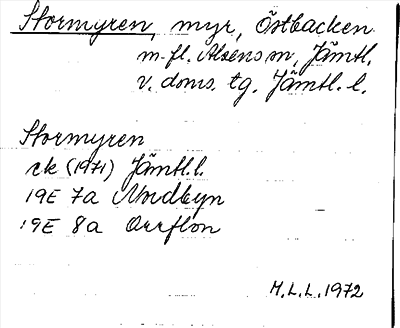 Stormyren, myr, Östbacken
m.fl. Alsens sn, Jämtl.
v. doms. tg. Jämtl. l.
Stormyren
ek (1971) Jämtl. l.
19E 7a Nordbyn
19E 8a Oxflon
M.L.L. 1972